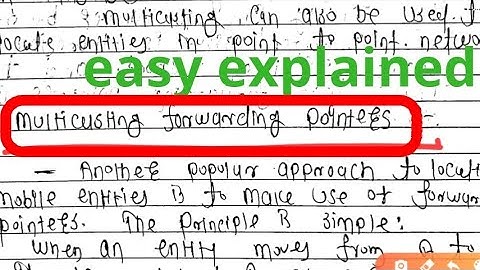 multicusting can also be used
locate entities in point to point netwo
easy explained
multicusting forwarding pointers :-
- Another popular approach to locate
mobile entities is to make use of forwar
pointers. The principle is simple:
when an entity moves from A to